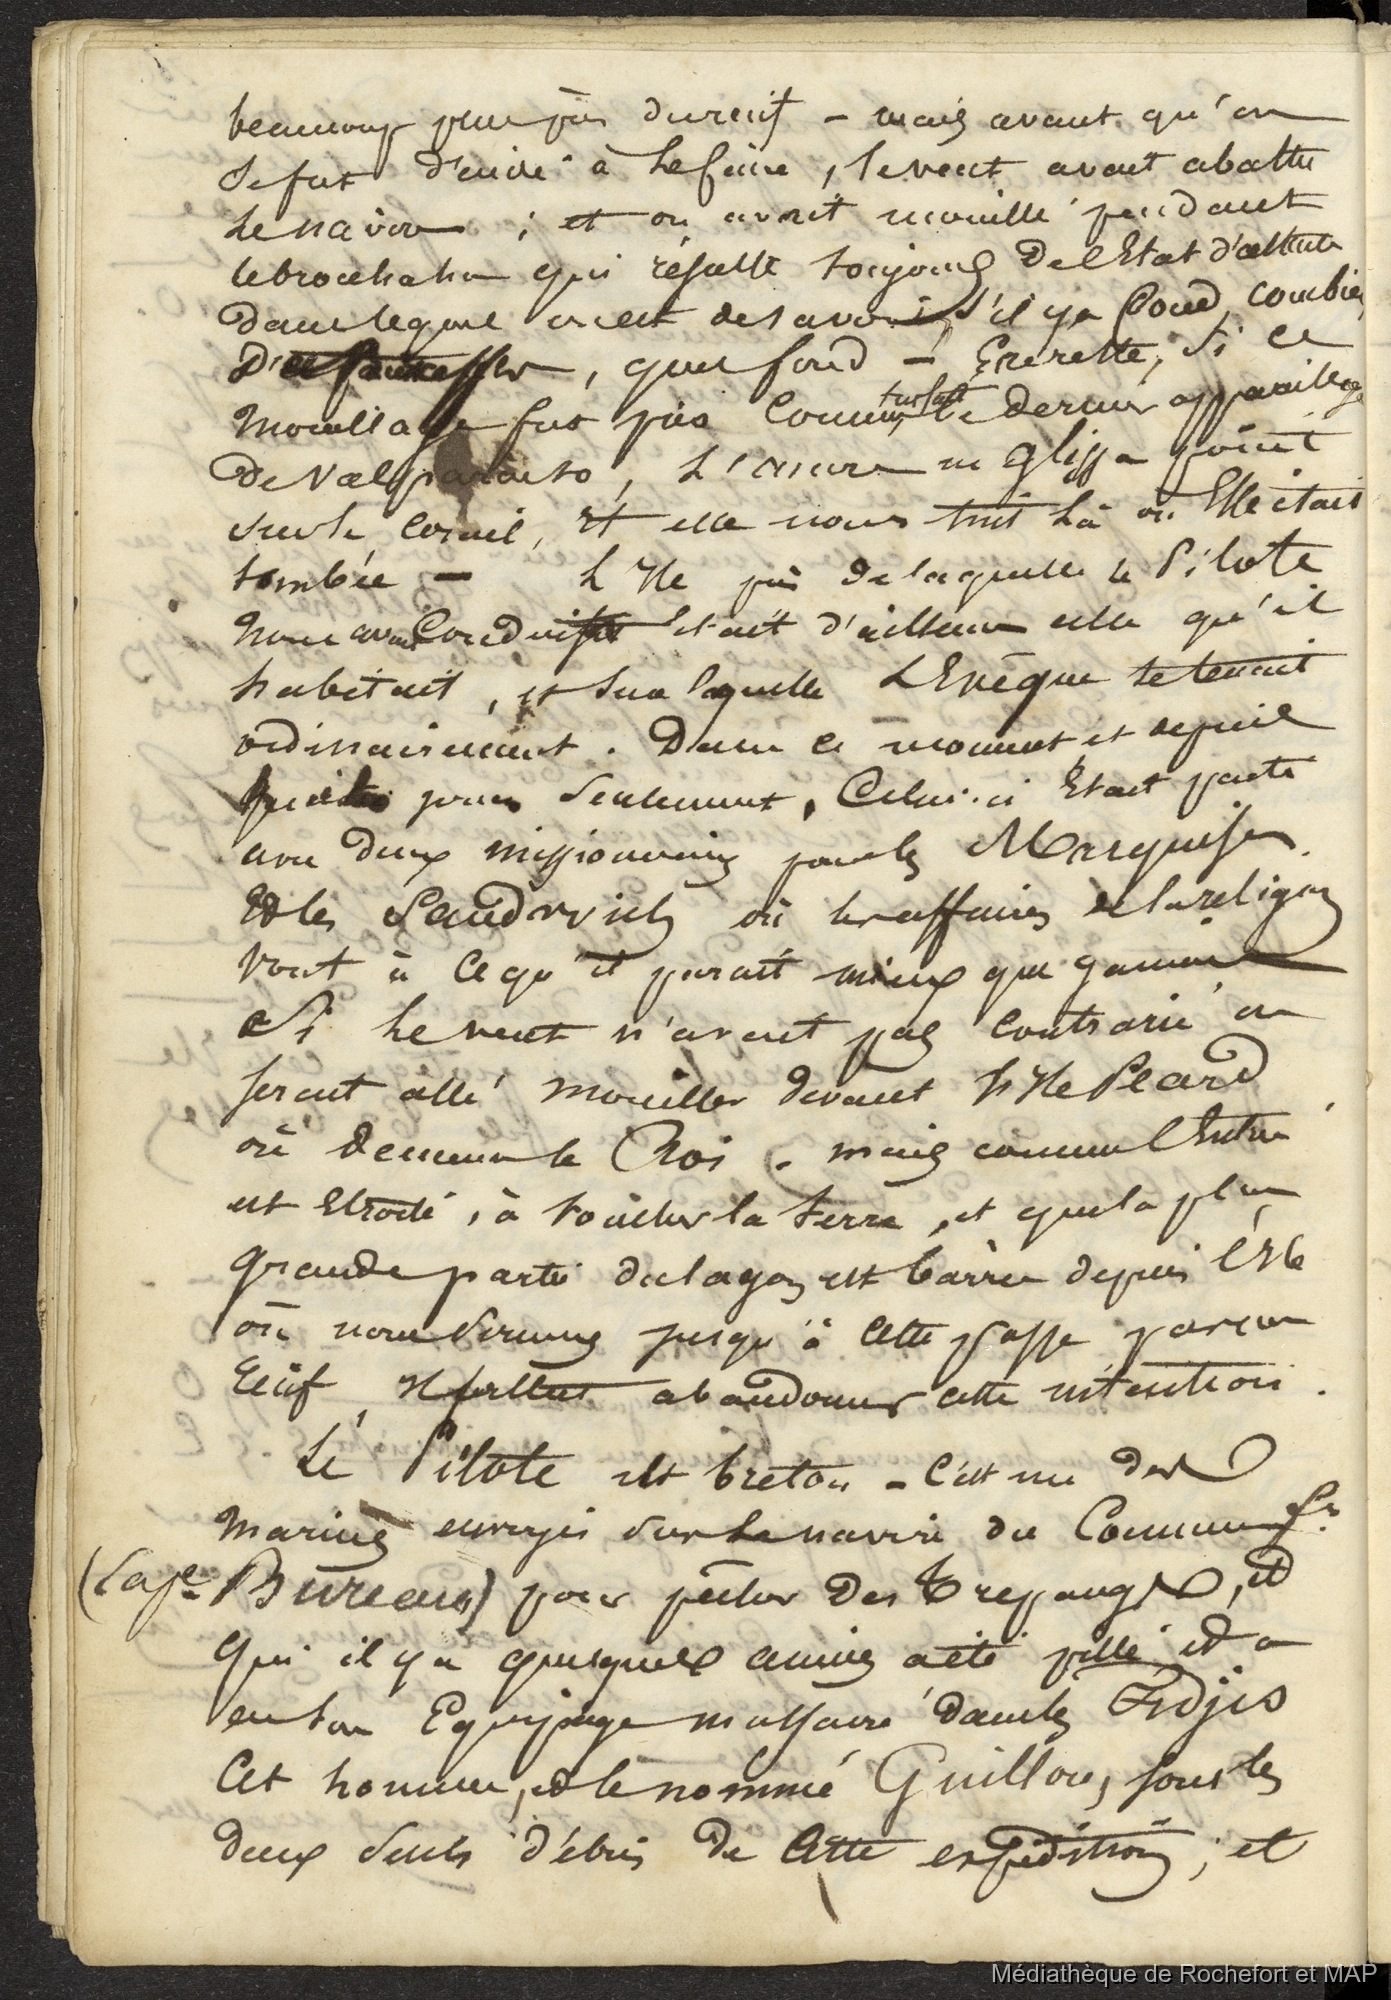 beaucoup plus près du récif – mais avant qu'on
se fut décidé à le faire, le vent avait abattu
le navire ; et on avait mouillé pendant
le brouhaha qui résulte toujours de l'Etat d'attente
dans lequel on est de savoir s'il y a fond, combien
, quel fond – Au reste, si ce
mouillage fut pris comme fut fait le dernier appareillage
de Valparaiso, L'ancre ne glissa point
sur le corail, Et elle nous tint là où Elle était
tombée – L'Ile près de laquelle le Pilote
nous avait conduits était d'ailleurs celle qu'il
habitait, et sur laquelle L'Evêque se tenait
ordinairement. Dans ce moment et depuis
huit jours seulement, Celui-ci Etait parti
avec deux missionnaires pour les Marquises
Et les Sandwichs où les affaires de la religion
vont à ce qu'il parait mieux que jamais
Si le vent n'avait pas contrarié on
serait allé mouiller devant l'Ile Peard
où demeure le Roi. mais comme l'Entrée
est Etroite, à toucher la terre, et que la plus
grande partie du lagon est barrée depuis l'Ile
où nous sommes jusqu'à cette passe par un
Récif, Il fallut abandonner cette intention.
Le Pilote est breton – C'est un des
marins envoyés sur le navire du Commerce
(Cape Bureau) pour pêcher des trepangs, et
qui il y a quelques années a été pillé et a
eu son Equipage massacré dans les Fidjis
Cet homme, et le nommé Guillou, sont les
deux seuls débris de cette expédition ; et
Médiathèque de Rochefort et MAP